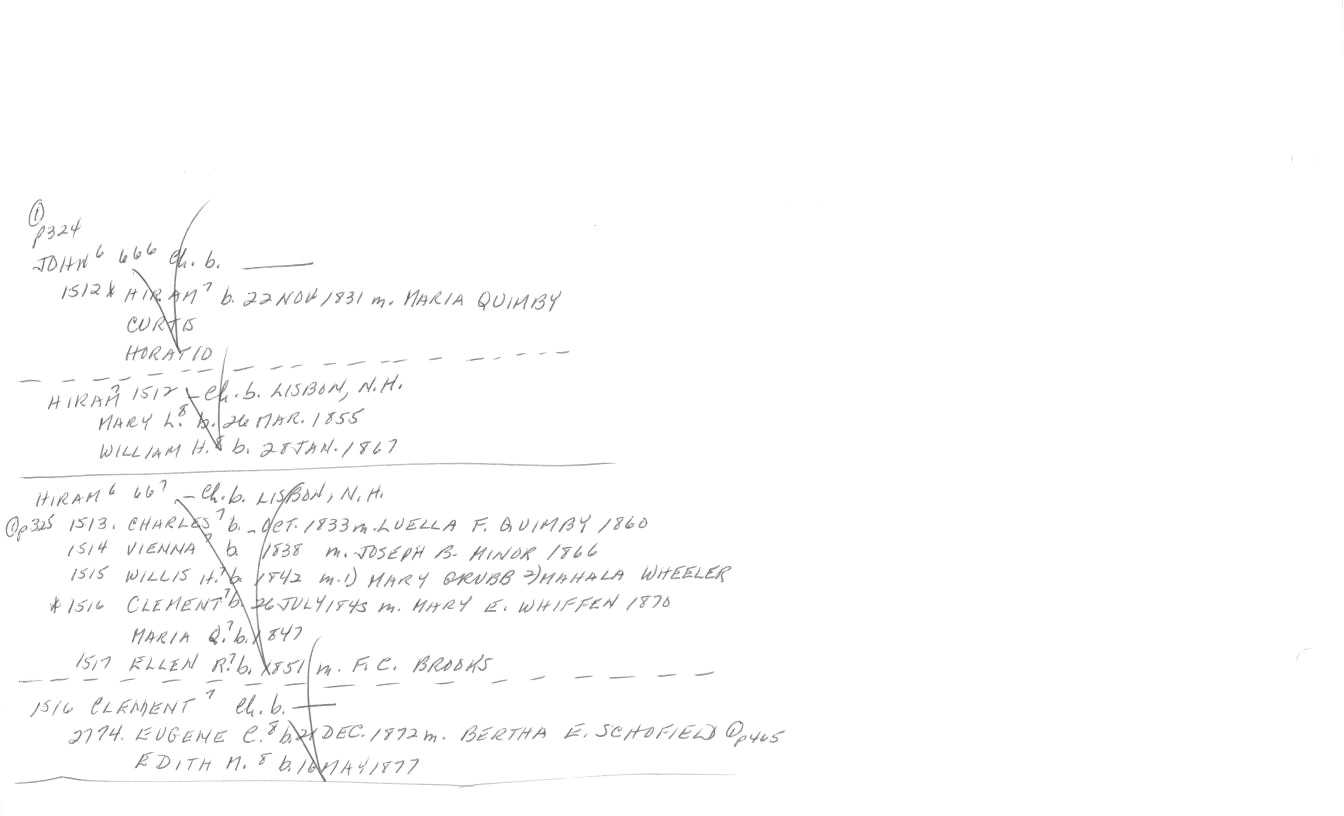 ①
p324
JOHN⁶ 666 Ch. b. ———
1512* HIRAM⁷ b. 22 NOV 1831 m. MARIA QUIMBY
CURTIS
HORATIO
HIRAM⁷ 1512 – Ch. b. LISBON, N.H.
MARY L.⁸ b. 26 MAR. 1855
WILLIAM H.⁸ b. 28 JAN. 1867
HIRAM⁶ 667 – Ch. b. LISBON, N.H.
①p325 1513. CHARLES⁷ b. – OCT. 1833 m. LUELLA F. QUIMBY 1860
1514 VIENNA⁷ b. 1838 m. JOSEPH B. MINOR 1866
1515 WILLIS H.⁷ b. 1842 m. 1) MARY GRUBB 2) MAHALA WHEELER
*1516 CLEMENT⁷ b. 26 JULY 1845 m. MARY E. WHIFFEN 1870
MARIA Q.⁷ b. 1847
1517 ELLEN R.⁷ b. 1851 m. F. C. BROOKS
1516 CLEMENT⁷ Ch. b. ———
2774. EUGENE C.⁸ b. 21 DEC. 1872 m. BERTHA E. SCHOFIELD ①p465
EDITH M.⁸ b. 16 MAY 1877